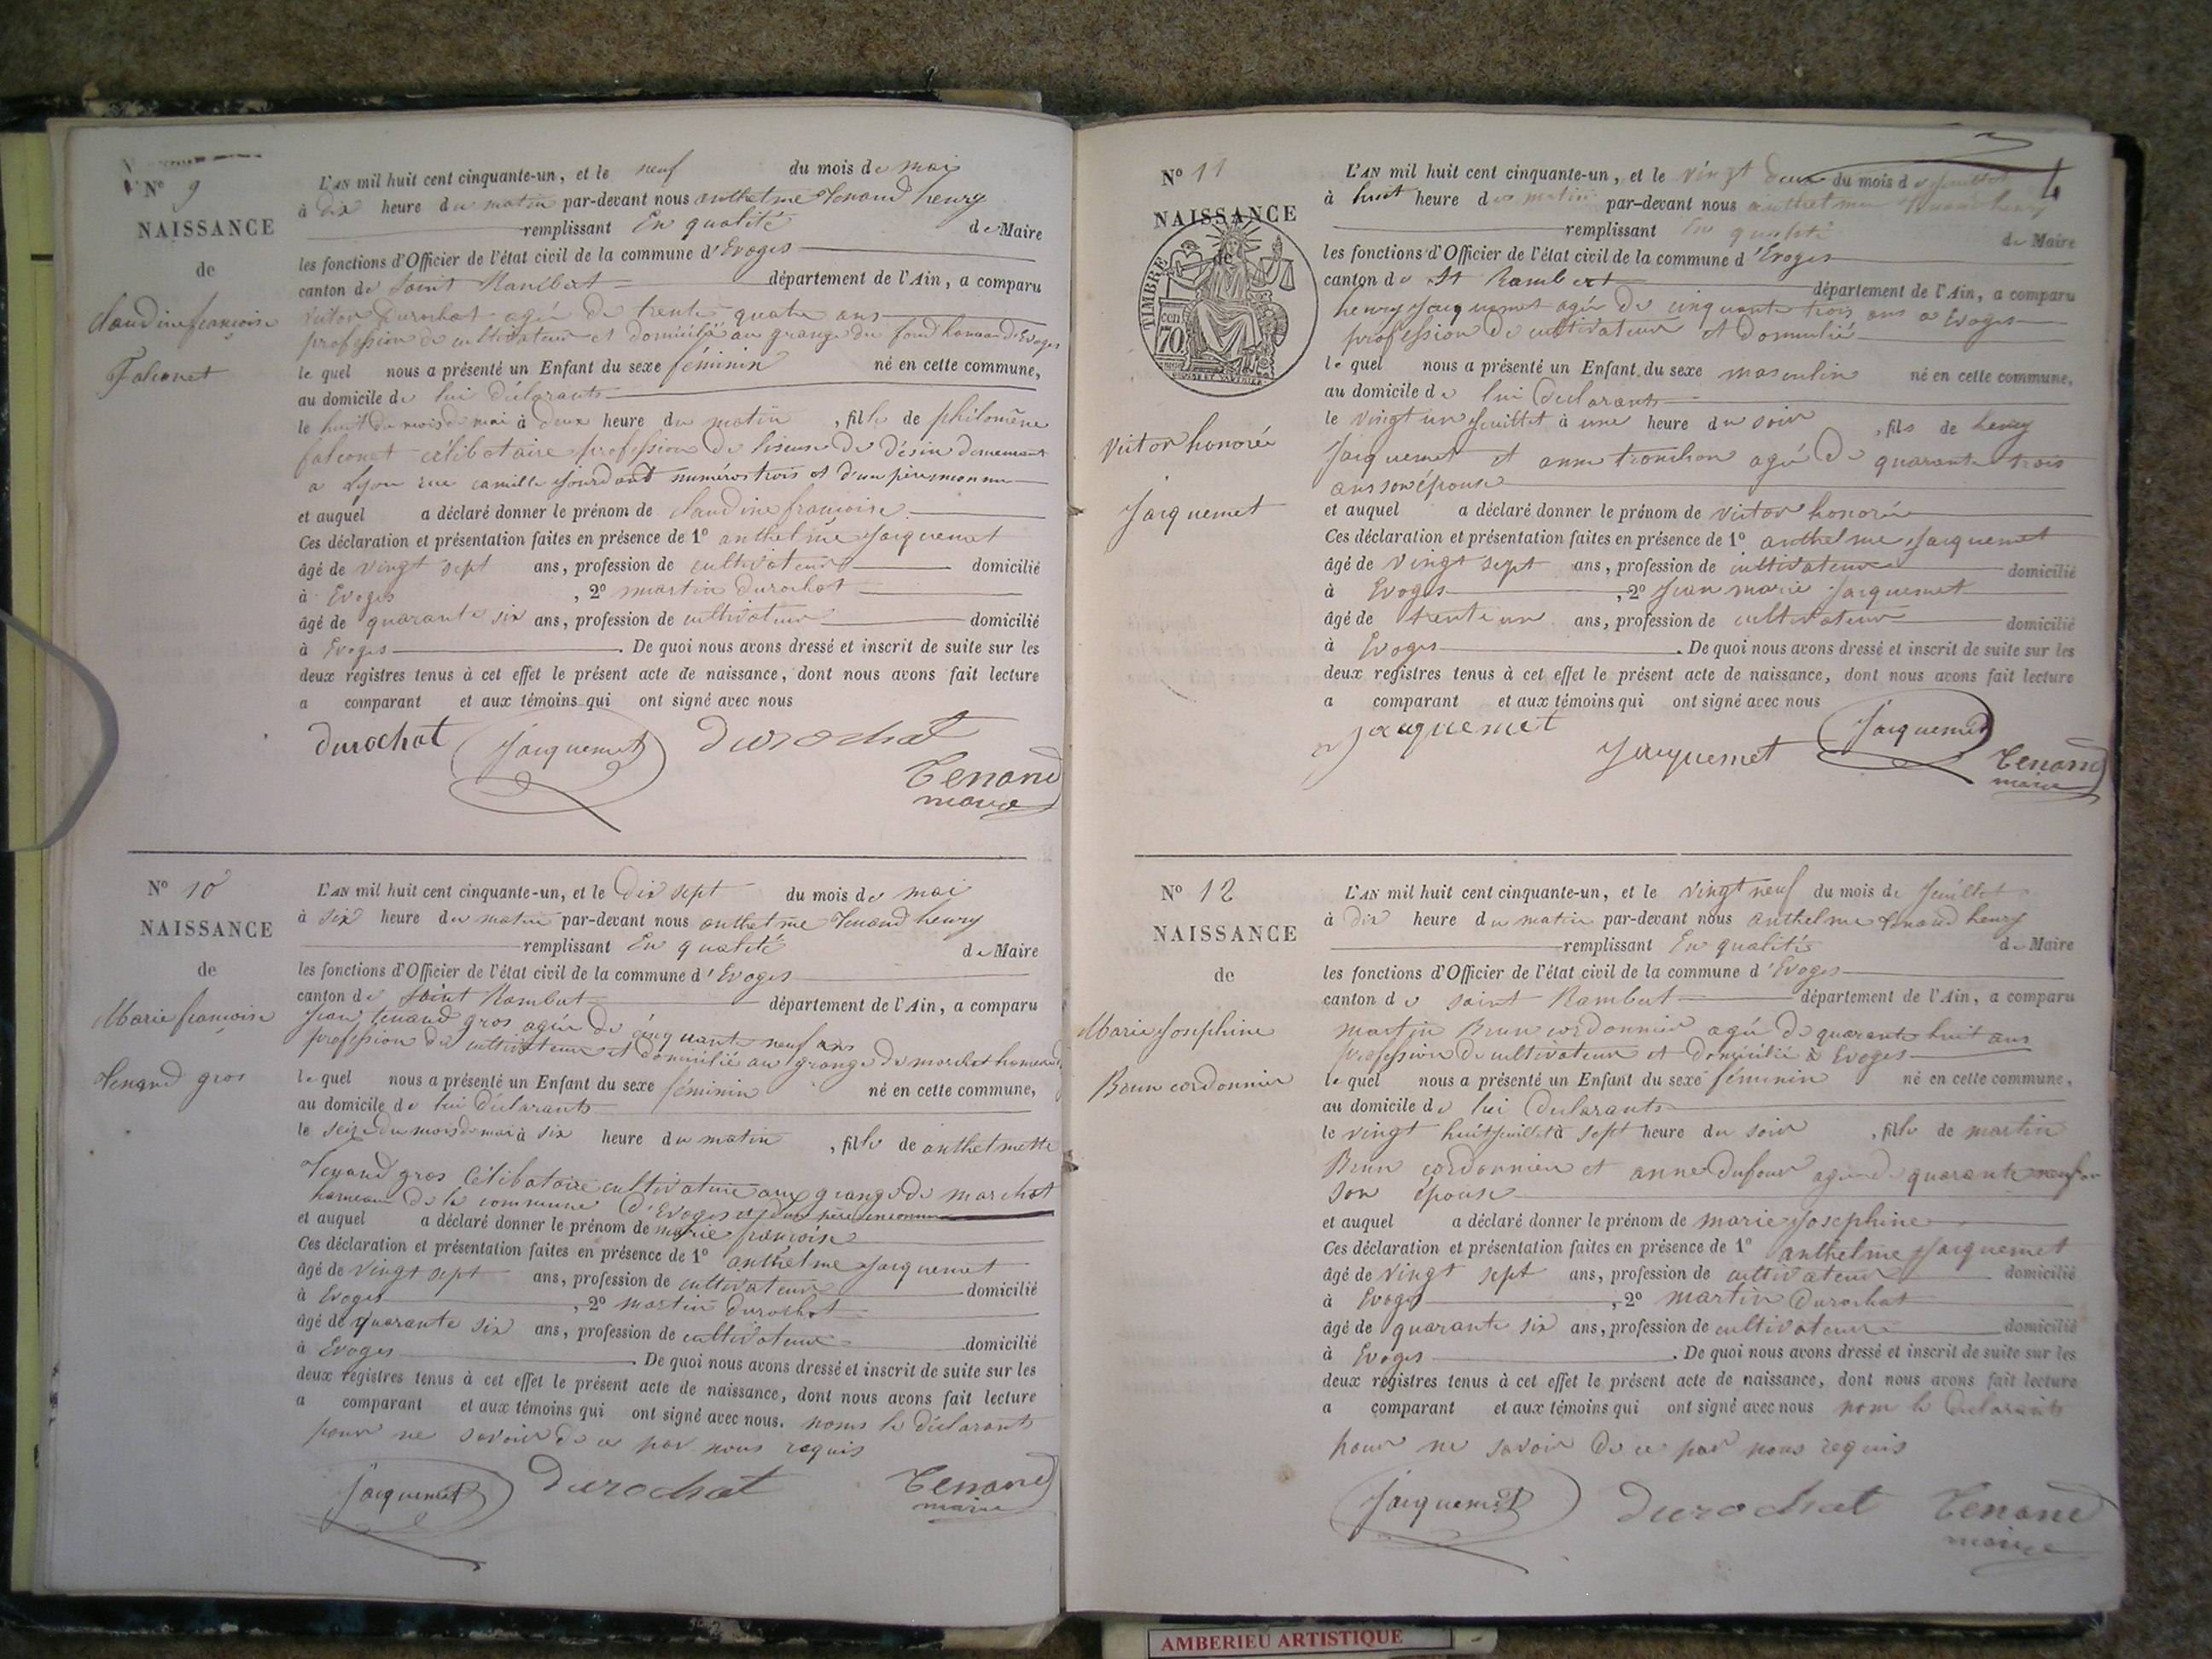 N° 9
NAISSANCE
de
Claudine françoise
Falconet
L'AN mil huit cent cinquante-un, et le neuf du mois de mai
à dix heure du matin par-devant nous anthelme tenand henry
remplissant En qualité de Maire
les fonctions d'Officier de l'état civil de la commune d'Evoges
canton de Saint Rambert département de l'Ain, a comparu
victor Durochat agée de trente quatre ans
profession de cultivateur et domicilié au grange du fond hameau d'Evoges
le quel nous a présenté un Enfant du sexe féminin né en cette commune,
au domicile de lui déclarants
le huit du mois de mai à deux heure du matin, fille de philomène
falconet célibataire profession de liseuse de désin demeurant
a Lyon rue camille jourdant numéros trois et d'un père inconnu
et auquel a déclaré donner le prénom de Claudine françoise
Ces déclaration et présentation faites en présence de 1° anthelme Jacquemet
âgé de vingt sept ans, profession de cultivateur domicilié
à Evoges, 2° martin Durochat
âgé de quarante six ans, profession de cultivateur domicilié
à Evoges. De quoi nous avons dressé et inscrit de suite sur les
deux registres tenus à cet effet le présent acte de naissance, dont nous avons fait lecture
a comparant et aux témoins qui ont signé avec nous
durochat Jacquemet Durochat
Tenand
maire
N° 10
NAISSANCE
de
Marie françoise
tenand gros
L'AN mil huit cent cinquante-un, et le Dix sept du mois de mai
à six heure du matin par-devant nous anthelme tenand henry
remplissant En qualité de Maire
les fonctions d'Officier de l'état civil de la commune d'Evoges
canton de Saint Rambert département de l'Ain, a comparu
jean tenand gros agée de cinquante neuf ans
profession de cultivateur et domicilié au grange de marchat hameau
le quel nous a présenté un Enfant du sexe féminin né en cette commune,
au domicile de lui déclarants
le seize du mois de mai à six heure du matin, fille de anthelmette
tenand gros célibataire cultivatrice aux grange de marchat
hameau de la commune d'Evoges et d'un père inconnu
et auquel a déclaré donner le prénom de marie françoise
Ces déclaration et présentation faites en présence de 1° anthelme Jacquemet
âgé de vingt sept ans, profession de cultivateur domicilié
à Evoges, 2° martin Durochat
âgé de quarante six ans, profession de cultivateur domicilié
à Evoges. De quoi nous avons dressé et inscrit de suite sur les
deux registres tenus à cet effet le présent acte de naissance, dont nous avons fait lecture
a comparant et aux témoins qui ont signé avec nous. nome le déclarants
pour ne savoir de ce par nous requis
Jacquemet Durochat Tenand
maire
4
N° 11
NAISSANCE
de
TIMBRE
70 cen
Victor honorée
Jacquemet
L'AN mil huit cent cinquante-un, et le vingt deux du mois de juillet
à huit heure du matin par-devant nous anthelme tenand henry
remplissant En qualité de Maire
les fonctions d'Officier de l'état civil de la commune d'Evoges
canton de St Rambert département de l'Ain, a comparu
henry Jacquemet agée de cinquante trois ans a Evoges
profession de cultivateur et domicilié
le quel nous a présenté un Enfant du sexe masculin né en cette commune,
au domicile de lui déclarants
le vingt un juillet à une heure du soir, fils de henry
Jacquemet et anne tronchon agée de quarante trois
ans son épouse
et auquel a déclaré donner le prénom de victor honorée
Ces déclaration et présentation faites en présence de 1° anthelme Jacquemet
âgé de vingt sept ans, profession de cultivateur domicilié
à Evoges, 2° jean marie Jacquemet
âgé de trente un ans, profession de cultivateur domicilié
à Evoges. De quoi nous avons dressé et inscrit de suite sur les
deux registres tenus à cet effet le présent acte de naissance, dont nous avons fait lecture
a comparant et aux témoins qui ont signé avec nous
Jacquemet Jacquemet Jacquemet
Tenand
maire
N° 12
NAISSANCE
de
Marie Josephine
Brun cordonnier
L'AN mil huit cent cinquante-un, et le vingt neuf du mois de juillet
à dix heure du matin par-devant nous anthelme tenand henry
remplissant En qualité de Maire
les fonctions d'Officier de l'état civil de la commune d'Evoges
canton de saint Rambert département de l'Ain, a comparu
martin Brun cordonnier agée de quarante huit ans
profession de cultivateur et domicilié à Evoges
le quel nous a présenté un Enfant du sexe féminin né en cette commune,
au domicile de lui déclarants
le vingt huit juillet à sept heure du soir, fille de martin
Brun cordonnier et anne dufour agée de quarante neuf an
son épouse
et auquel a déclaré donner le prénom de marie Josephine
Ces déclaration et présentation faites en présence de 1° anthelme Jacquemet
âgé de vingt sept ans, profession de cultivateur domicilié
à Evoges, 2° martin Durochat
âgé de quarante six ans, profession de cultivateur domicilié
à Evoges. De quoi nous avons dressé et inscrit de suite sur les
deux registres tenus à cet effet le présent acte de naissance, dont nous avons fait lecture
a comparant et aux témoins qui ont signé avec nous nom le déclarants
pour ne savoir de ce par nous requis
Jacquemet Durochat Tenand
maire
AMBERIEU ARTISTIQUE